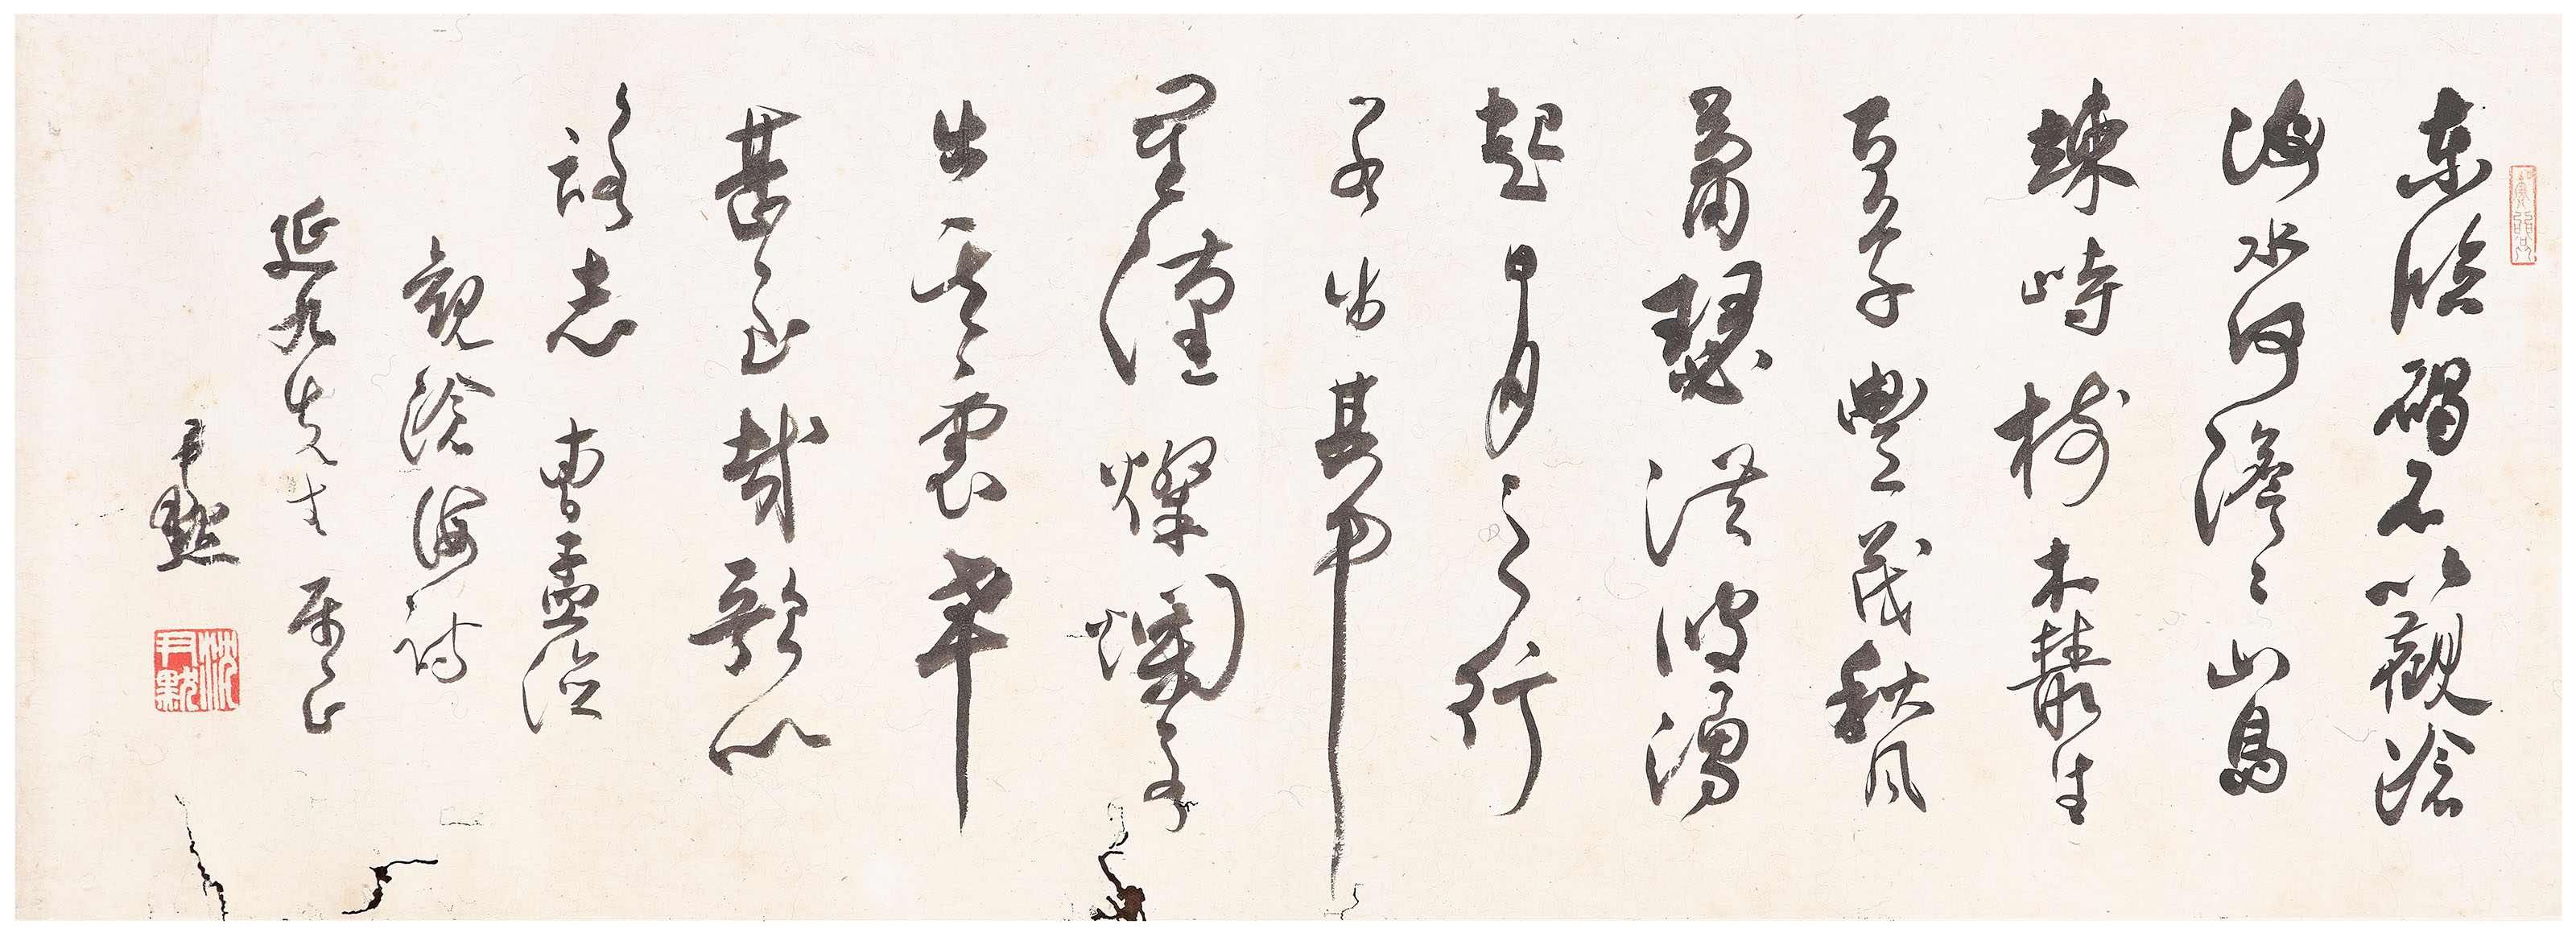 東臨碣石以觀滄
海水何澹〻山島
竦峙樹木叢生
百草豐茂秋風
蕭瑟洪波湧
起日月之行
若出其中
星漢燦爛若
出其裏幸
甚至哉歌以
詠志 曹孟德
觀滄海詩
延九先生 屬正
尹默
沈尹默